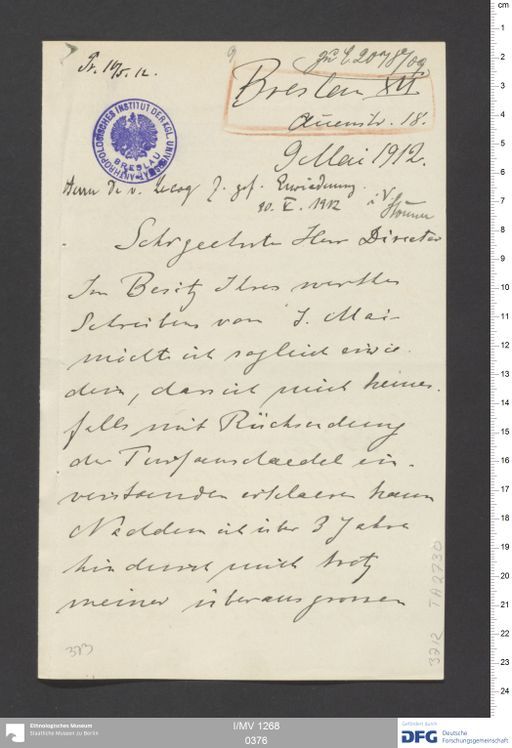 Pr. 10/5. 12.
zu E. 2078/09
Breslau XVI
Auenstr. 18.
ANTHROPOLOGISCHES INSTITUT DER KGL. UNIVERSITÄT
BRESLAU
9 Mai 1912.
Herrn Dr v. Lecoq z. gef. Erwiederung.
10. V. 1912
i. V.
Sehrgeehrter Herr Director
Im Besitz Ihres werthen
Schreibens vom 7. Mai
möchte ich sogleich erwie-
dern, dass ich mich keines-
falls mit Rücksendung
der Turfanschaedel ein-
verstanden erklaeren kann
Nachdem ich über 3 Jahre
hindurch mich trotz
meiner überausgrossen
373
3212 TA 2730
cm
1
2
3
4
5
6
7
8
9
10
11
12
13
14
15
16
17
18
19
20
21
22
23
24
Ethnologisches Museum
Staatliche Museen zu Berlin
I/MV 1268
0376
Gefördert durch
DFG Deutsche
Forschungsgemeinschaft